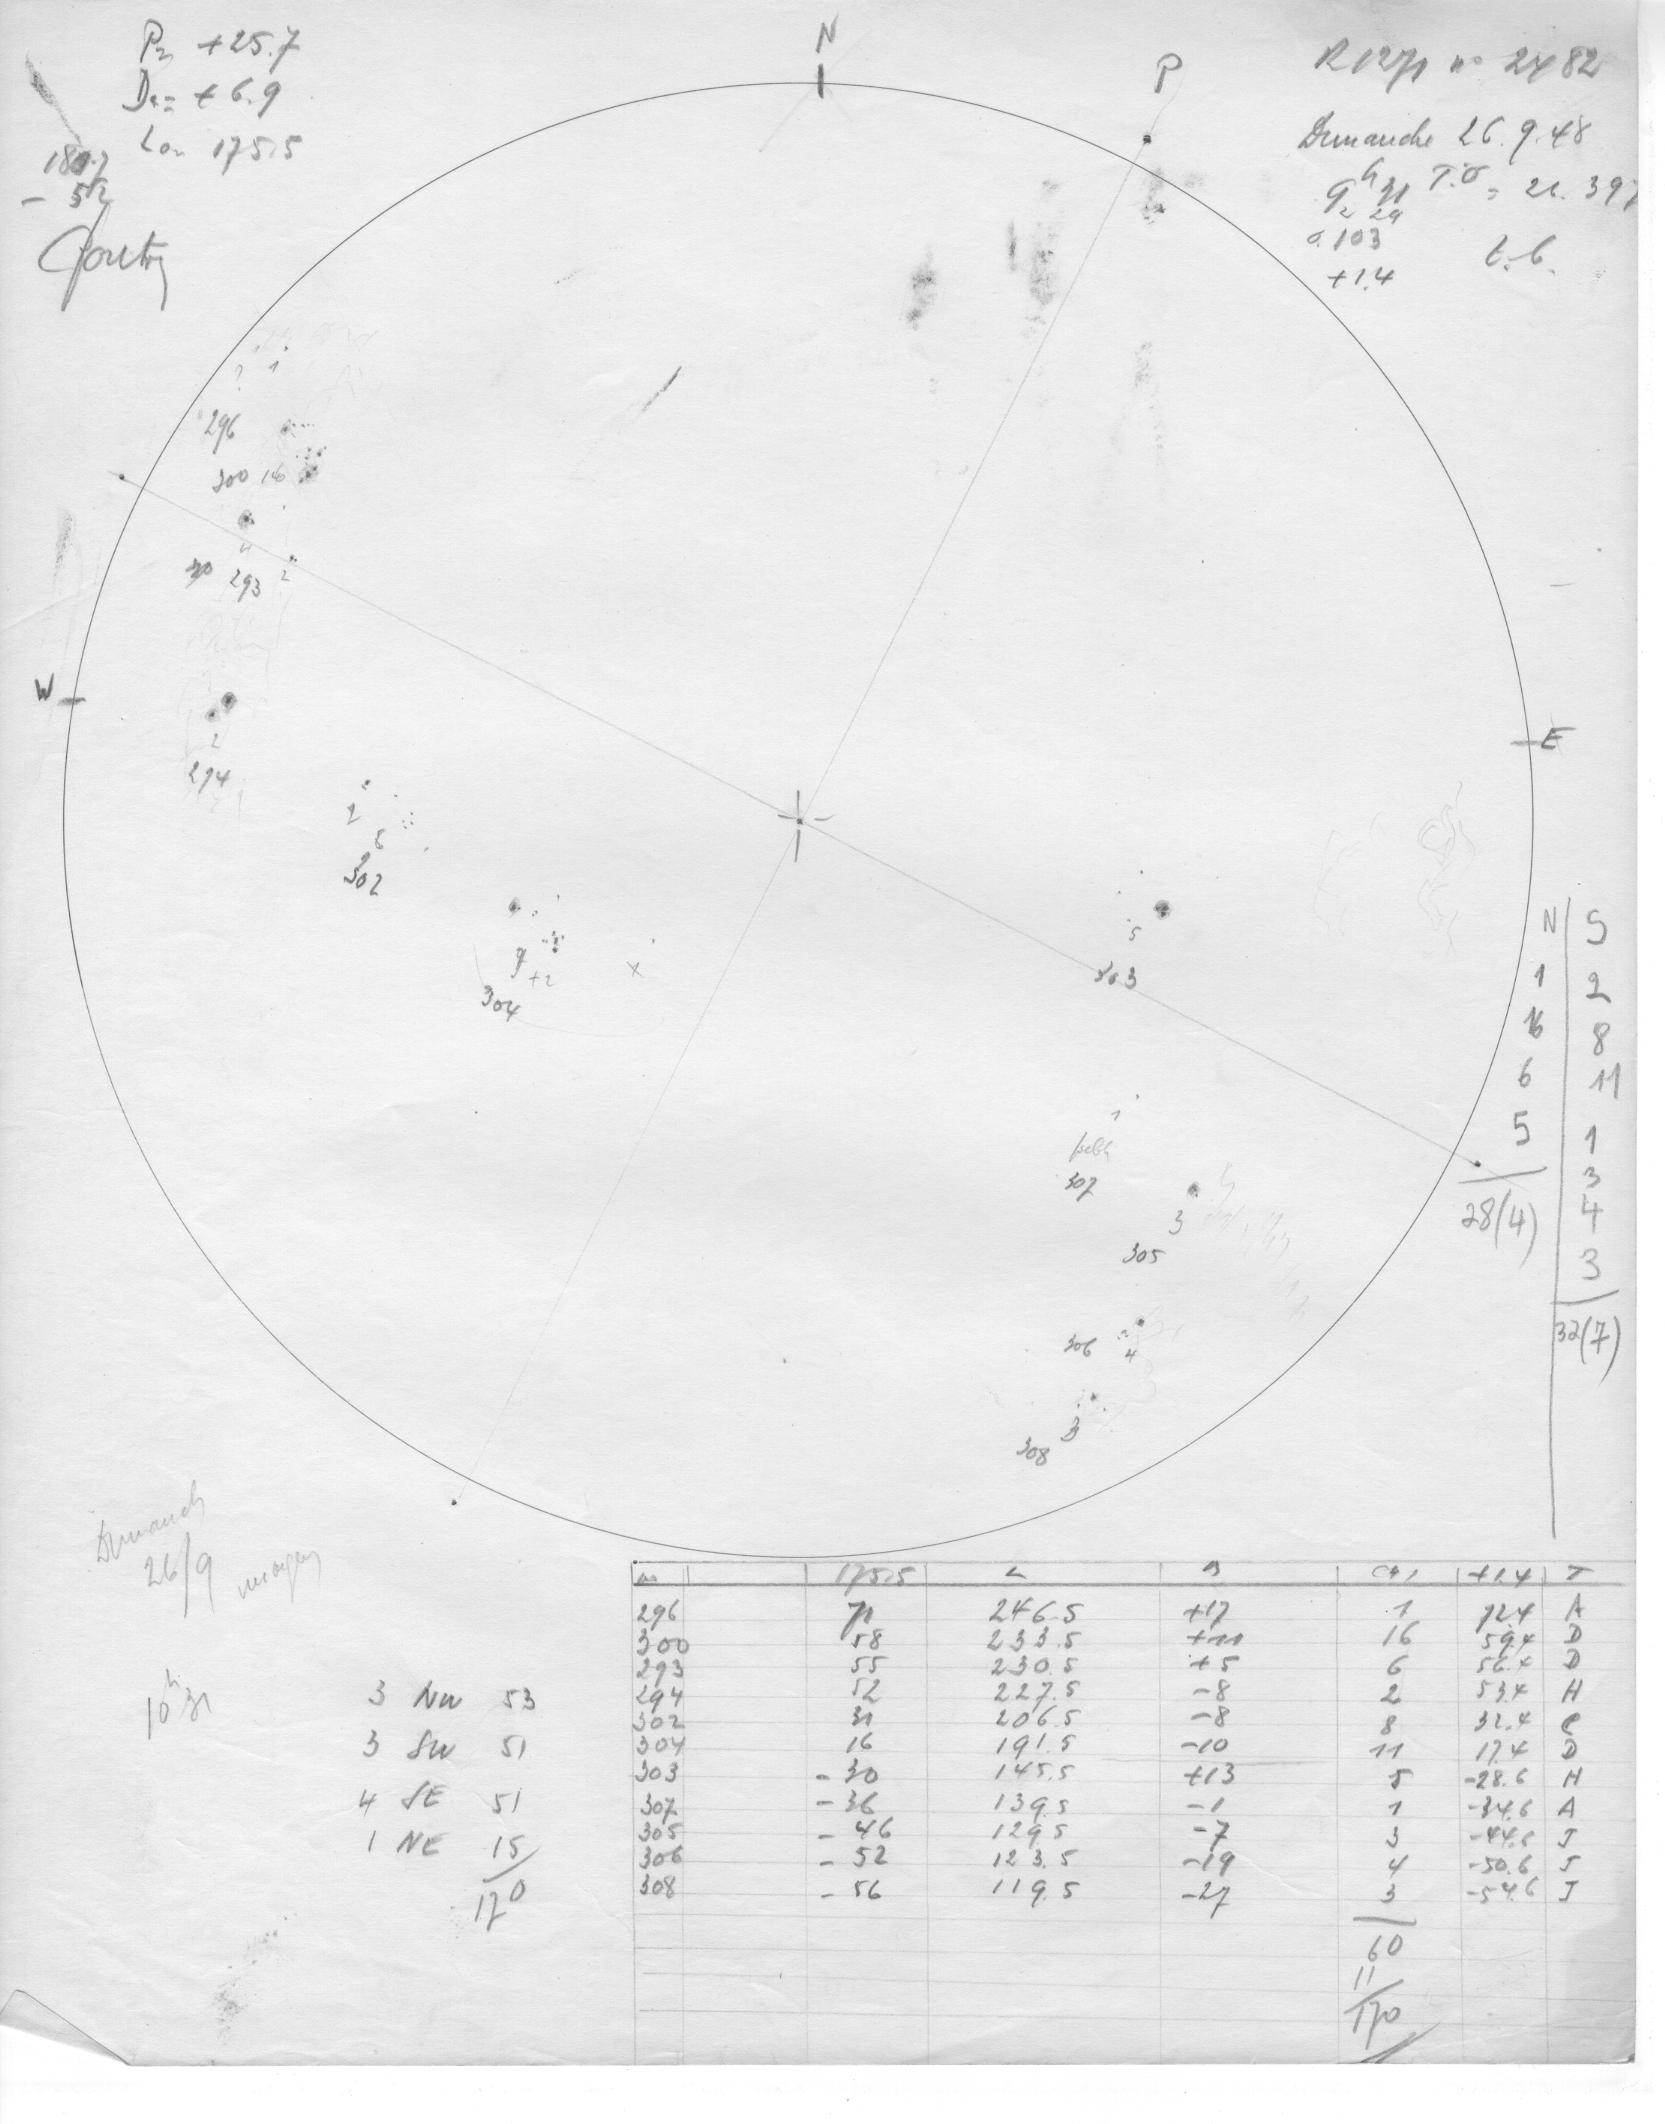 P= +25.7
D= +6.9
Lo= 175.5
N
P
n° 2482
Dimanche 26.9.48
9h31 T.O = 26.397
0.103
+1.4
t.b.
?
1
296
300 16
4
293 2
W
E
2
294
2
8
302
9
+2
304
x
5
303
1
307
3
305
306
4
3
308
N S
1 2
16 8
6 11
5 1
3
4
3
28(4)
32(7)
Dimanch
26/9
10h31
3 NW 53
3 SW 51
4 SE 51
1 NE 15
170
175.5 L B +1.4 T
296 71 246.5 +17 1 72.4 A
300 58 233.5 +11 16 59.4 D
293 55 230.5 +5 6 56.4 D
294 52 227.5 -8 2 53.4 H
302 31 206.5 -8 8 32.4 C
304 16 191.5 -10 11 17.4 D
303 -30 145.5 +13 5 -28.6 H
307 -36 139.5 -1 1 -34.6 A
305 -46 129.5 -7 3 -44.6 J
306 -52 123.5 -19 4 -50.6 J
308 -56 119.5 -27 3 -54.6 J
60
11
170